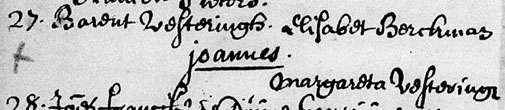 27. Barent Vesteringh. Elisabet Berchman
Joannes.
Margareta Vesteringh
28.